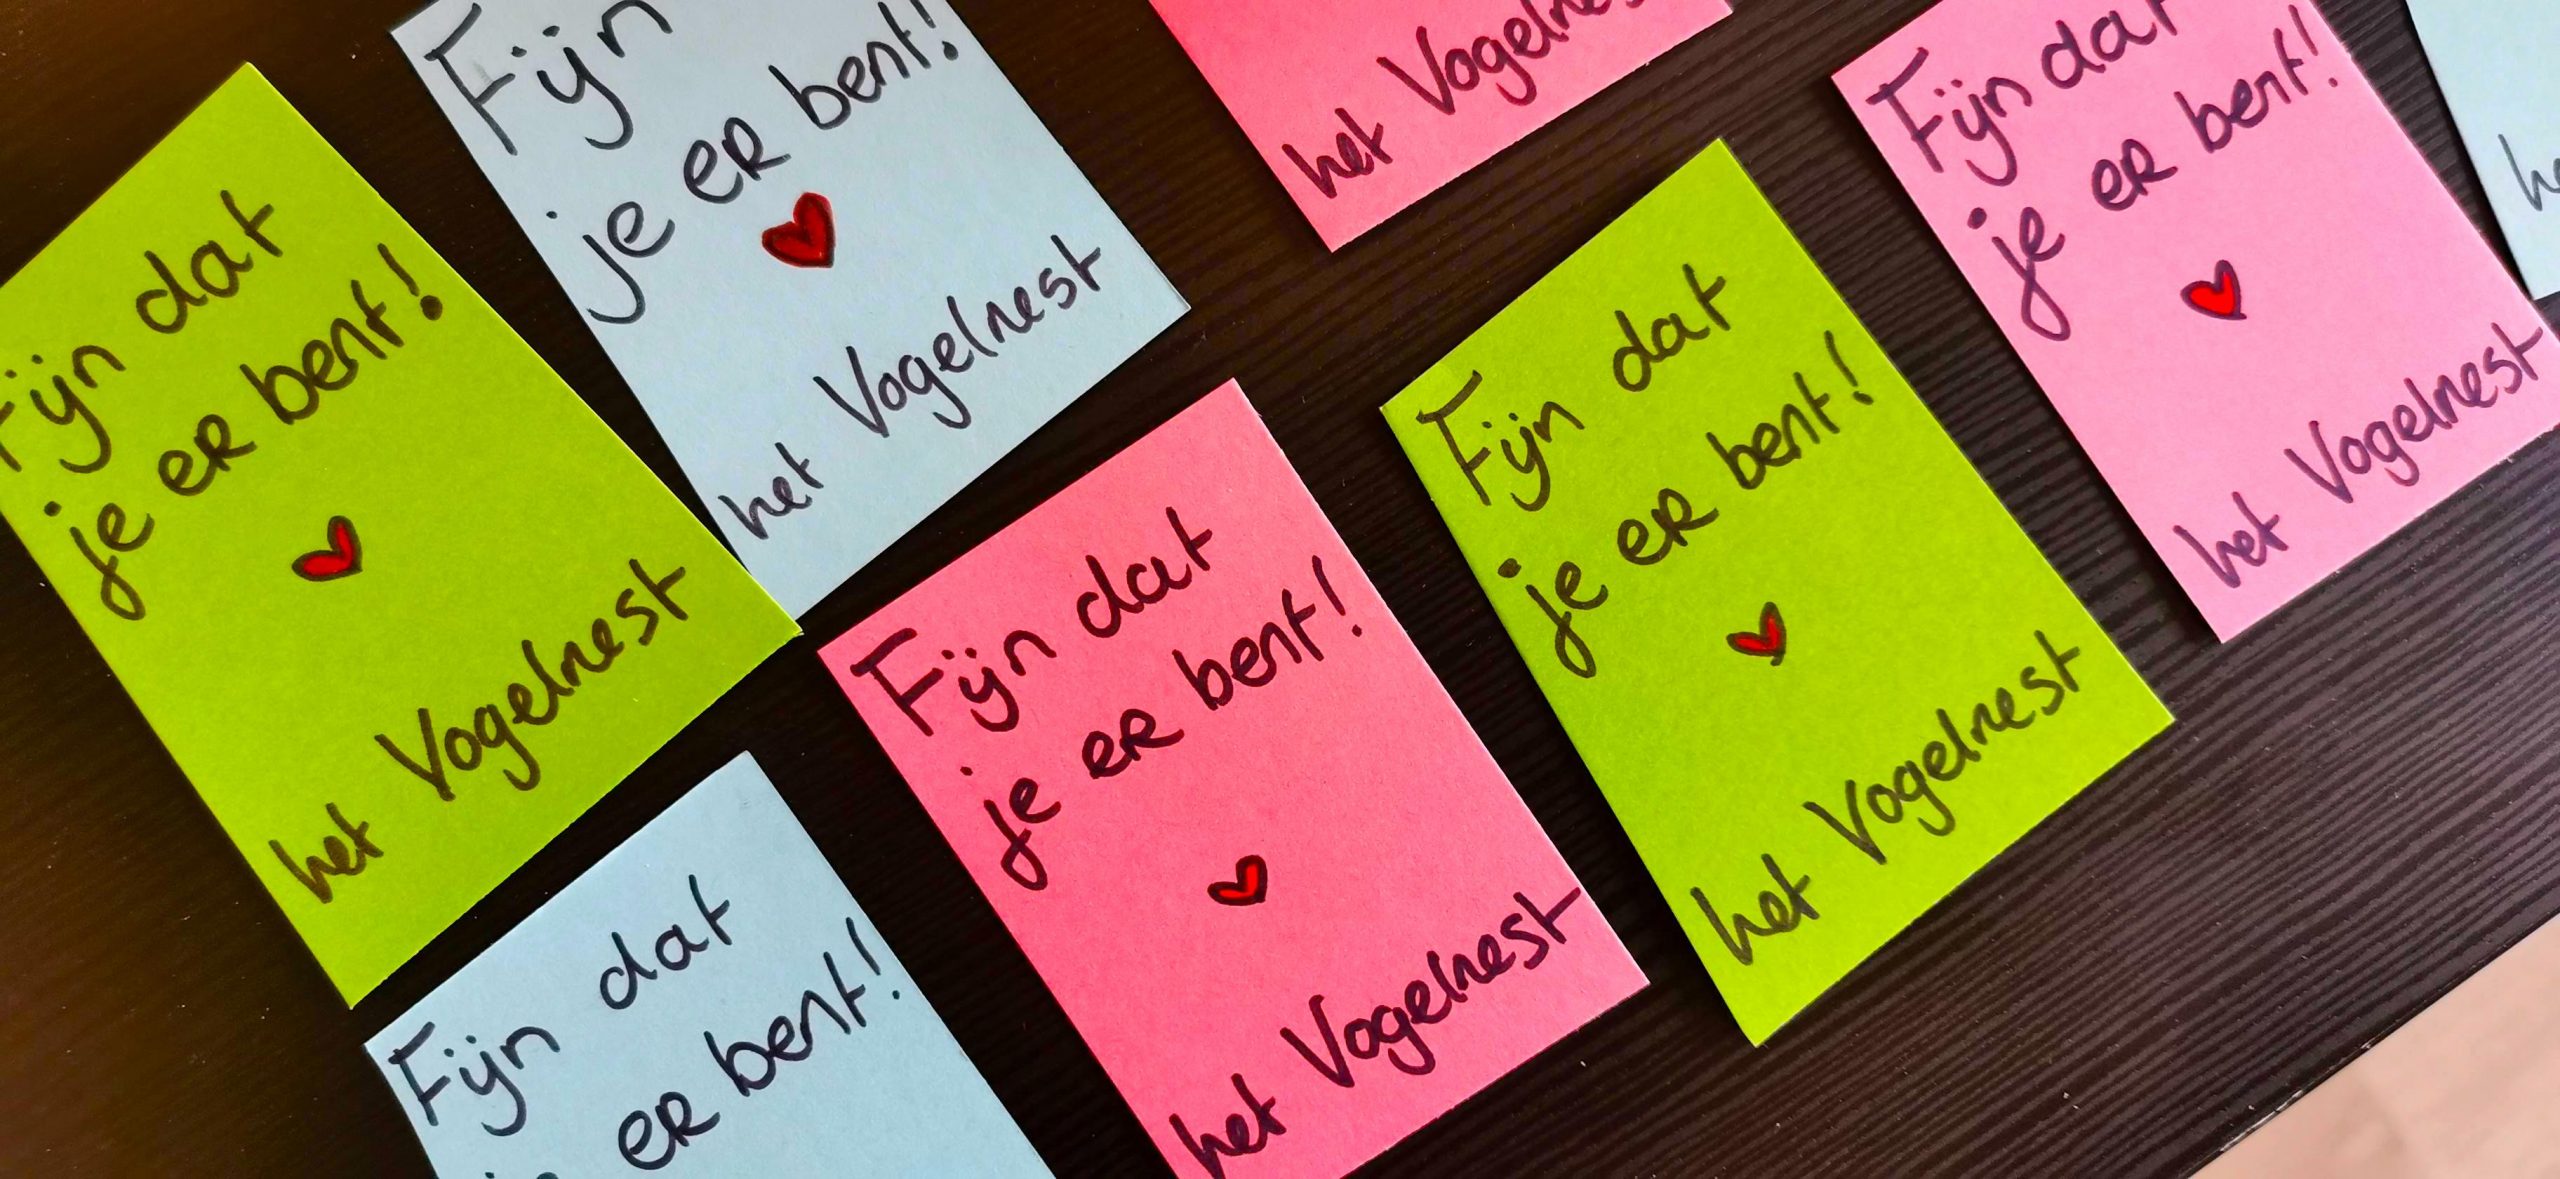 Fijn dat
je er bent!
het Vogelnest
Fijn
je er bent!
het Vogelnest
het
Fijn dat
je er bent!
het Vogelnest
Fijn dat
je er bent!
het Vogelnest
Fijn dat
je er bent!
het Vogelnest
Fijn dat
er bent!